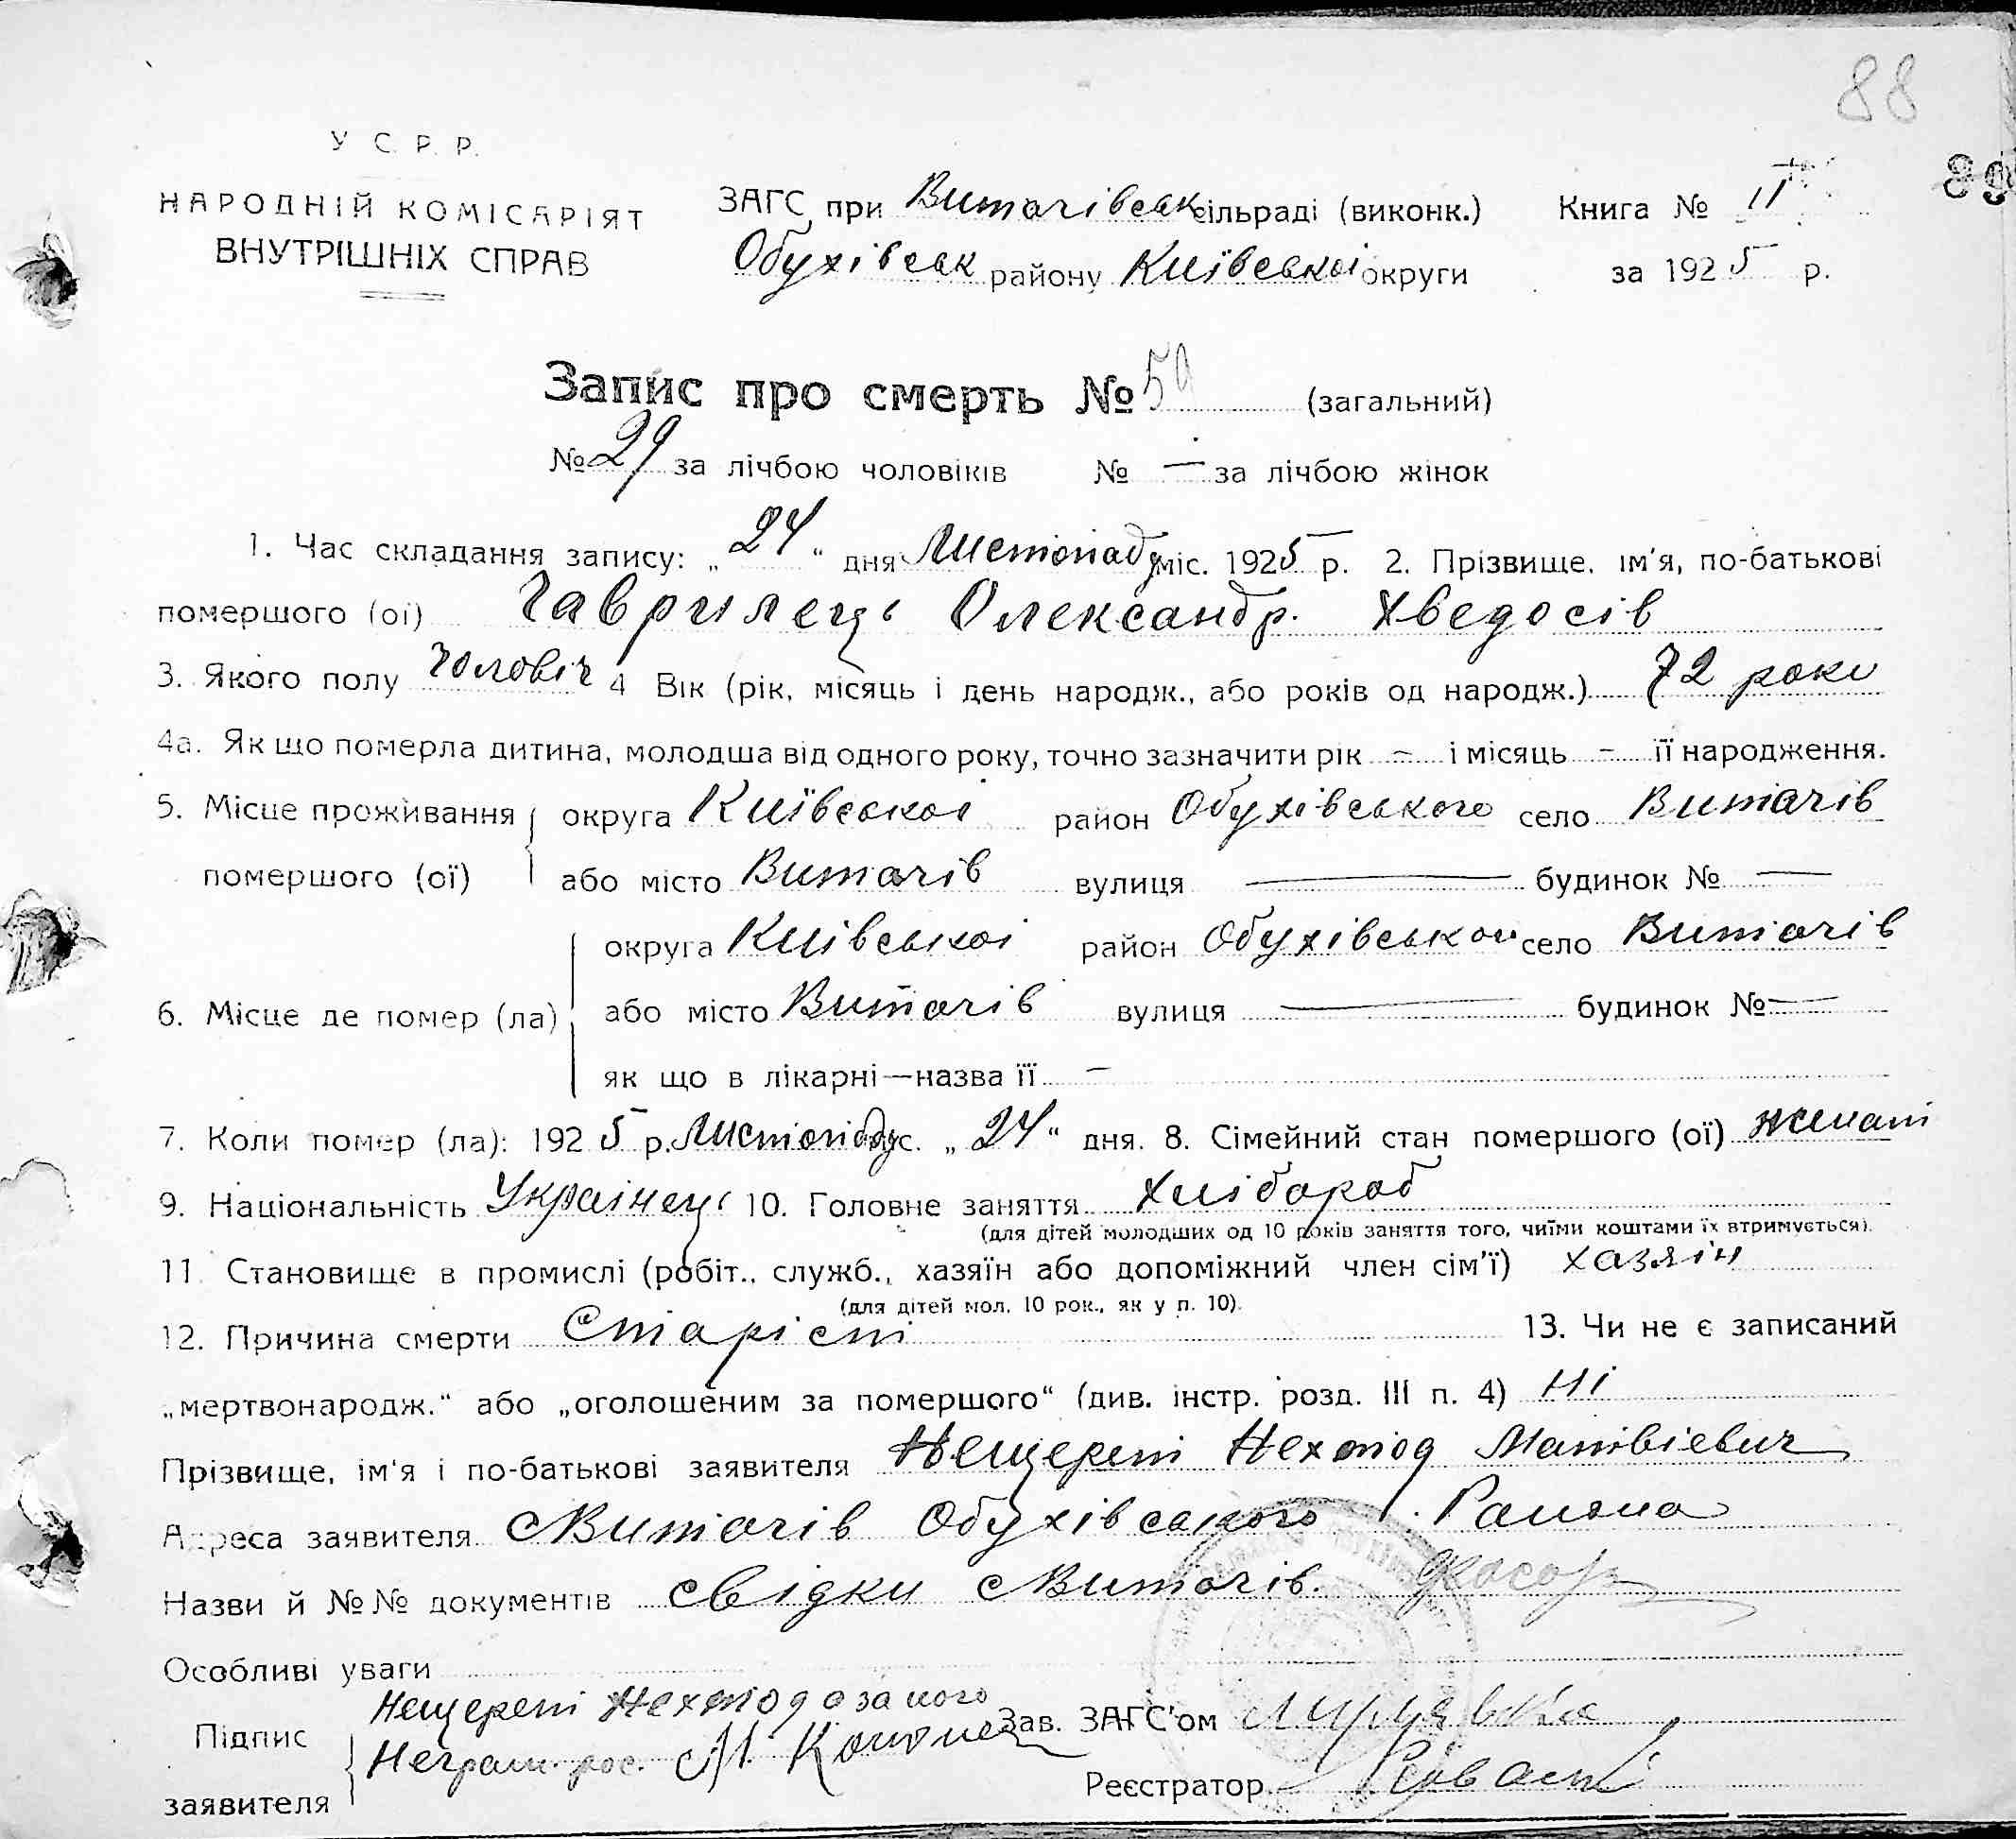 88
89
У С. Р. Р.
НАРОДНІЙ КОМІСАРІЯТ
ВНУТРІШНІХ СПРАВ
ЗАГС при Витачівськ сільраді (виконк.) Книга № II
Обухівськ району Київської округи за 1925 р.
Запис про смерть № 59 (загальний)
№ 29 за лічбою чоловіків № — за лічбою жінок
1. Час складання запису: „24“ дня Листопаду міс. 1925 р. 2. Прізвище, ім'я, по-батькові
помершого (ої) Гаврилець Олександр. Хведосів
3. Якого полу Чоловіч 4 Вік (рік, місяць і день народж., або років од народж.) 72 роки
4а. Як що померла дитина, молодша від одного року, точно зазначити рік – і місяць – її народження.
5. Місце проживання округа Київської район Обухівського село Витачів
помершого (ої) або місто Витачів вулиця — будинок № —
округа Київської район Обухівського село Витачів
6. Місце де помер (ла) або місто Витачів вулиця — будинок № —
як що в лікарні—назва її –
7. Коли помер (ла): 1925 р. Листопаду міс. „24“ дня. 8. Сімейний стан помершого (ої) женат
9. Національність Українець 10. Головне заняття Хлібороб
(для дітей молодших од 10 років заняття того, чиїми коштами їх втримується).
11. Становище в промислі (робіт., служб., хазяїн або допоміжний член сім'ї) хазяін
(для дітей мол. 10 рок., як у п. 10).
12. Причина смерти Старіст 13. Чи не є записаний
„мертвонародж.“ або „оголошеним за помершого“ (див. інстр. розд. III п. 4) Ні
Прізвище, ім'я і по-батькові заявителя Нещерет Нехтод Матвієвич
Адреса заявителя с Витачів Обухівського Района
Назви й №№ документів свідки с Витачів.
Особливі уваги
Нещерет Нехтод а за його
Підпис Зав. ЗАГС'ом
Неграм. рос. М.
заявителя Реєстратор